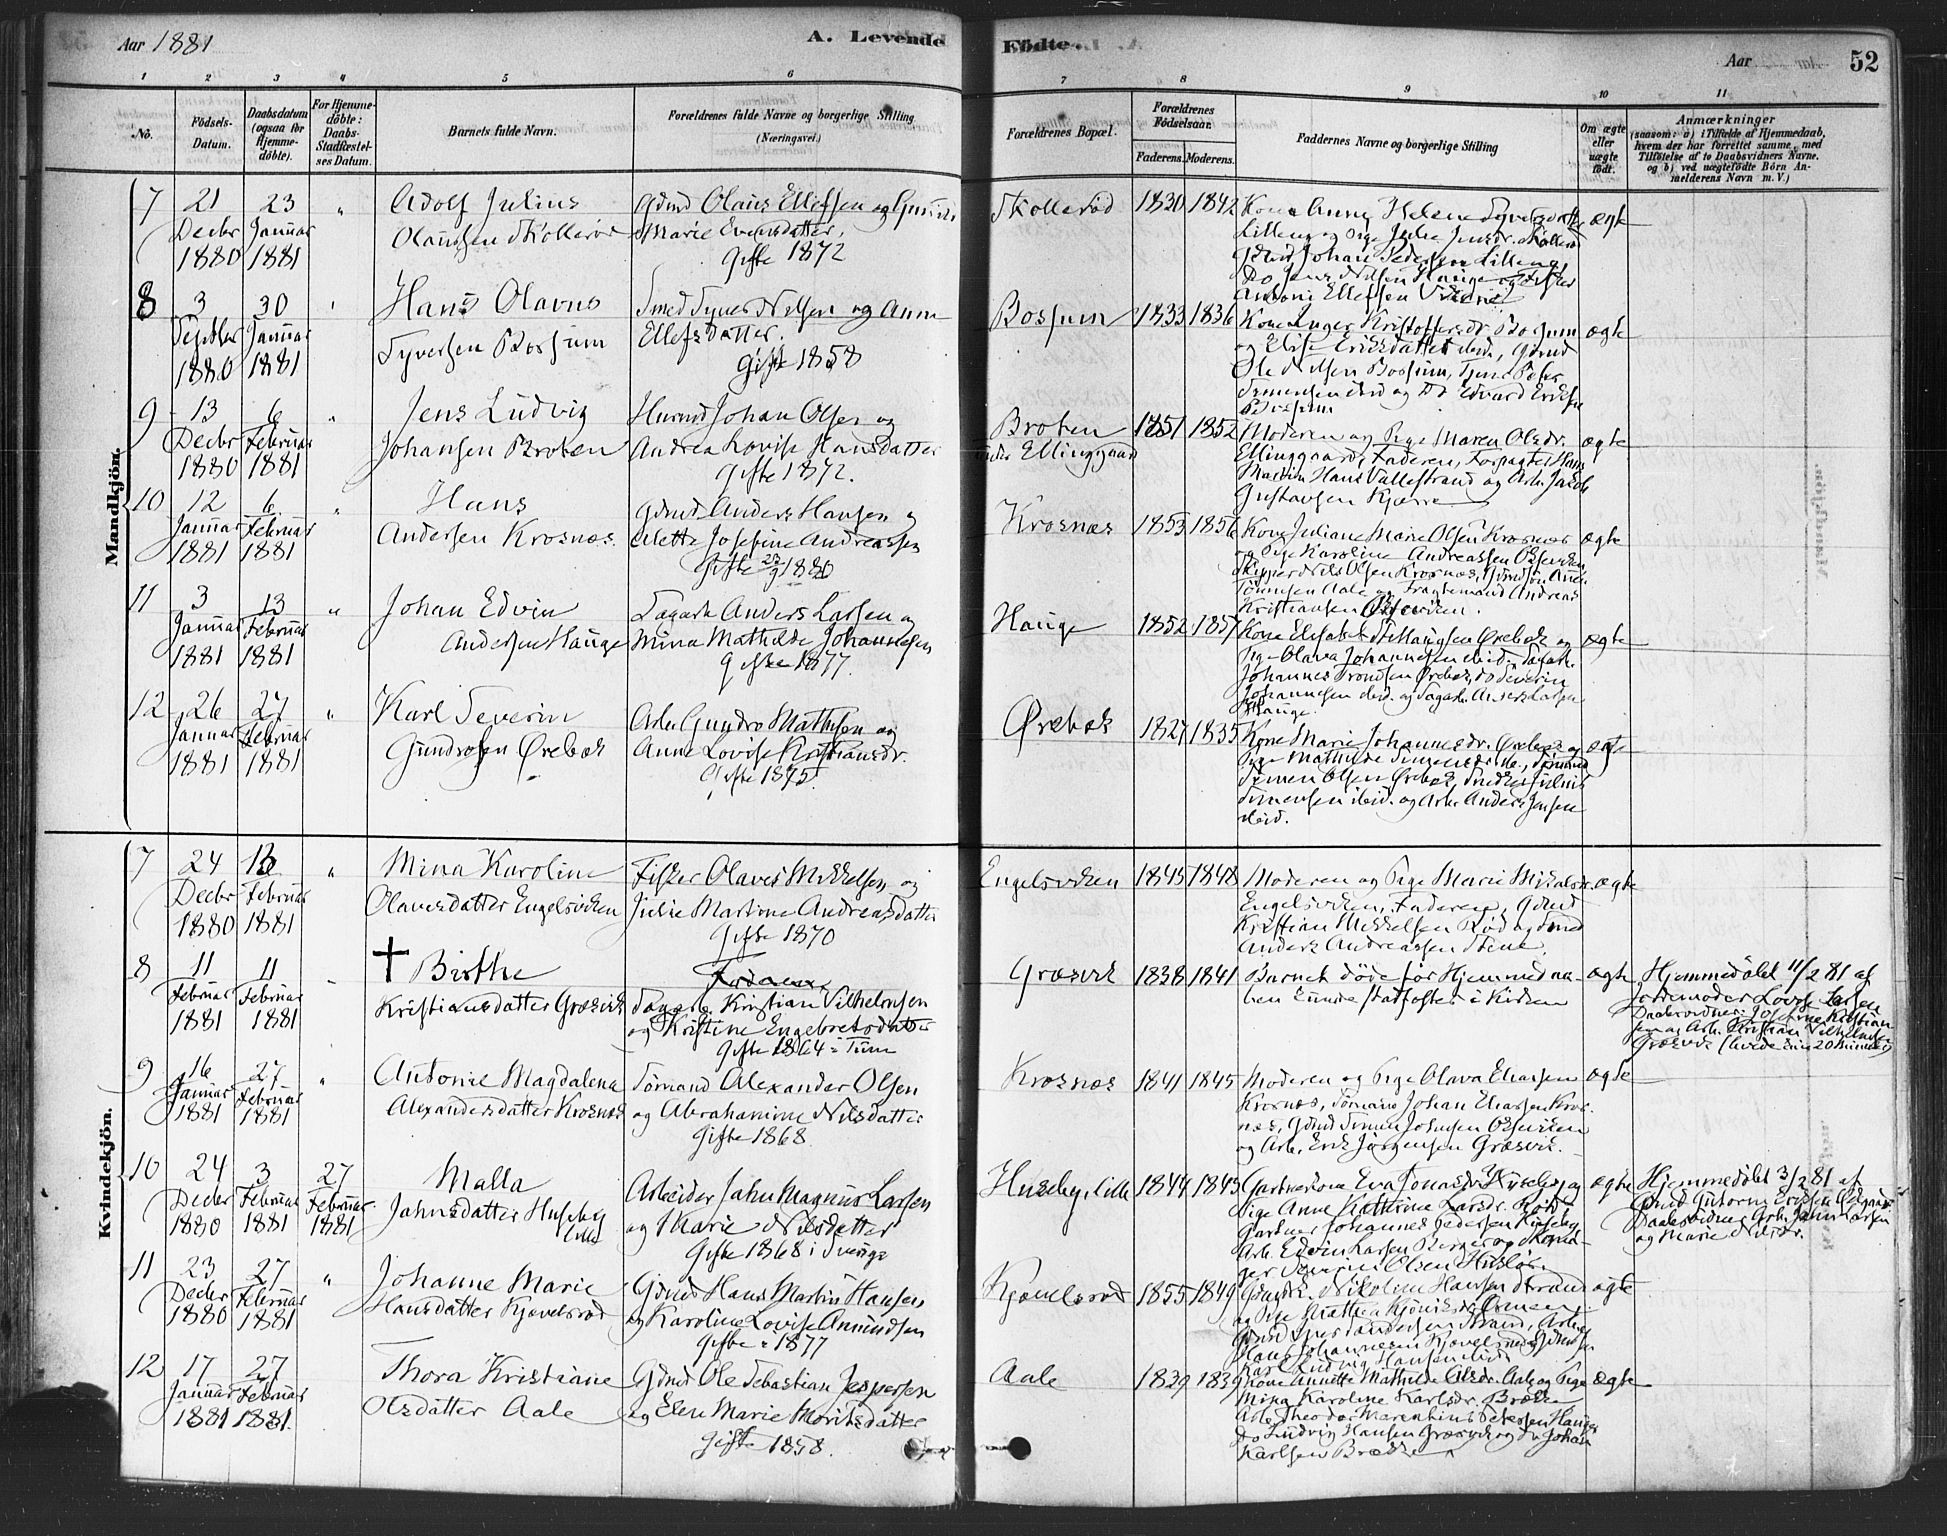 Aar 1881
A. Levende
Födte.
Aar
52
1 2 3 4 5 6 7 8 9 10 11
No.
Födsels-Datum.
Daabsdatum (ogsaa for Hjemme-döbte).
For Hjemme-döbte: Daabs-Stadfæstel-ses Datum.
Barnets fulde Navn.
Forældrenes fulde Navne og borgerlige Stilling (Næringsvei.)
Forældrenes Bopæl.
Forældrenes Födselsaar.
Faderens. Moderens.
Faddernes Navne og borgerlige Stilling
Om ægte eller uægte födt.
Anmærkninger
(saasom: a) i Tilfælde af Hjemmedaab, hvem der har forrettet samme, med Tilföielse af to Daabsvidners Navne. og b) ved uægtefödte Börn An-melderens Navn m. V.)
Mandkjön.
7
21 Decbr 1880
23 Januar 1881
"
Adolf Julius
Olaussen Skollerød
Gdmd Olaus Ellefsen og
Marie Evensdatter,
Gifte 1872
Skollerød
1830 1842
Kone Anne Helene Syversdatter
Lilleng og Pige Julie Jensdr. Skollerød
Gdmd Johan Pedersen Lilleng,
Do Jens Nilsen Hauge og Fisker
Antoni Ellefsen
ægte
8
3 Septbr 1880
30 Januar 1881
Hans Olavus
Syversen Bossum
Smed Syver Nilsen og Anne
Ellefsdatter.
Gifte 1858
Bossum
1833 1836
Kone Inger Kristoffersdr. Bossum
og Elise Eriksdatter ibid, Gdmd
Ole Nilsen Bossum,
Simensen ibid og Do Edvard Eriksen
Bossum
ægte
9
13 Decbr 1880
6 Februar 1881
"
Jens Ludvig
Johansen Broten
Husmd Johan Olsen og
Andrea Lovise Hansdatter
Gifte 1872.
Broten
under Ellinggaard
1851 1852
Moderen og Pige Maren Olsdr.
Ellinggaard, Faderen, Forpagter Hans
Martin Hans Vallestrand og Arb. Jakob
Gustavsen Kjærre
ægte
10
12 Januar 1881
6 Februar 1881
"
Hans
Andersen Krosnæs.
Gdmd Anders Hansen og
Alette Josefine Andreassen
Gifte 23/9 1880
Krosnæs
1853 1856
Kone Juliane Marie Olsen Krosnæs
og Pige Karoline Andreassen
Skipper Nils Olsen Krosnæs,
Tönnesen Aale og Fragtemand Andreas
Kristiansen
ægte
11
3 Januar 1881
13 Februar 1881
"
Johan Edvin
Andersen Hauge
Sagarb. Anders Larsen og
Mina Mathilde Johannesen
Gifte 1877.
Hauge
1852 1857
Kone Elisabet Ørebæk og
Pige Olava Johannesen ibid.,
Johannes Ørebæk, Do Severin
Johannesen ibid. og Sagarb. Anders Larsen
Hauge.
ægte
12
26 Januar 1881
27 Februar 1881
"
Karl Severin
Gundrosen Ørebæk
Arb. Gundro Mathisen og
Anne Lovise Kristiansdr.
Gifte 1875.
Ørebæk
1827 1835
Kone Marie Johannesdr. Ørebæk og
Pige Mathilde Simensdr. ib.,
Simen Olsen Ørebæk, Snedker Julius
Simensen ibid. og Arb. Anders Jensen
ibid.
ægte
Kvindekjön.
7
24 Decbr 1880
13 Februar 1881
"
Mina Karoline
Olavesdatter Engelsviken
Fisker Olaves Mikkelsen og
Julie Martine Andreasdatter
Gifte 1870
Engelsviken
1845 1848
Moderen og Pige Marie Mikalsdr.
Engelsviken, Faderen, Gdmd
Kristian Mikkelsen Rød og Smed
Anders Andreassen Stene
ægte
8
11 Februar 1881
11 Februar 1881
† Birthe
Kristiansdatter Græsvik
Sagarb. Kristian Vilhelmsen
og Kristine Engebretsdatter
Gifte 1864 i Tune
Græsvik
1838 1841
Barnet døde før Hjemmedaa-
ben kunde stadfæstes i Kirken
ægte
Hjemmedøbt 11/2 81 af
Jordemoder Lovise Larsen
Daabsvidner: Josefine Kristian-
sen og Arb. Kristian Vilhelmsen
Græsvik (levede kun 20 Minutter)
9
16 Januar 1881
27 Februar 1881
"
Antonie Magdalena
Alexandersdatter Krosnæs
Sömand Alexander Olsen
og Abrahamine Nilsdatter
Gifte 1868
Krosnæs
1841 1845
Moderen og Pige Olava Eliassen
Krosnæs, Sömand Johan Eliassen Kros-
næs, Gdmd Simen Johnsen
og Arb. Erik Jørgensen Græsvik.
ægte
10
24 Decbr 1880
3 Februar 1881
27 Februar 1881
Malla
Jahnsdatter Huseby
lille
Arbeider Jahn Magnus Larsen
og Marie Nilsdatter
Gifte 1868 i Sverige
Huseby, lille
1844 1843
Gartnerkone Eva Jonasdr. Huseby og
Pige Anne Kathrine Larsdr.
Gartner Johannes Pedersen Huseby
Arb. Edvin Larsen Berger og
Severin Olsen
ægte
Hjemmedøbt 3/2 81 af
Gmd Guttorm Eriksen
Daabsvidner Arb. Jahn Larsen
og Marie Nilsdr.
11
23 Decbr 1880
27 Februar 1881
"
Johanne Marie
Hansdatter Kjøvelsrød
Gdmd Hans Martin Hansen
og Karoline Lovise Amundsen
Gifte 1877
Kjøvelsrød
1855 1849
Nikoline Hansen Strand
og Pige Mathea
Strand, Arb.
Hans Johannesen Kjøvelsrød
Karl Ludvig Hansen ibid
ægte
12
17 Januar 1881
27 Februar 1881
Thora Kristiane
Olsdatter Aale
Gdmd Ole Sebastian Jespersen
og Elen Marie Moritsdatter
Gifte 1858.
Aale
1829 1839
Kone Annette Mathilde Olsdr. Aale og Pige
Mina Karoline Karlsdr. Brække
Arb. Theodor Marentius Petersen Hauge
Do Ludvig Hansen Græsvik og Do Johan
Karlsen Brække
ægte